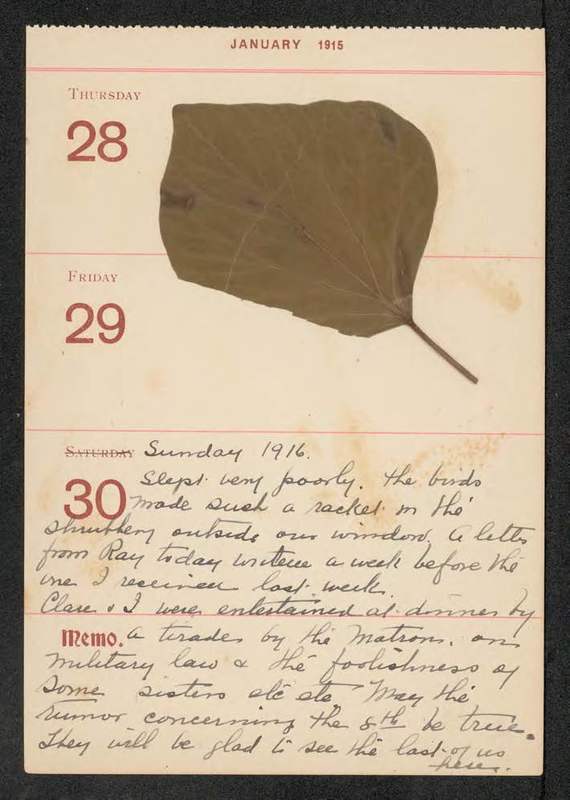 JANUARY 1915
THURSDAY
28
FRIDAY
29
SATURDAY Sunday 1916.
30 Slept very poorly. The birds
made such a racket in the
shrubbery outside our window. A letter
from Ray today written a week before the
one I received last week.
Clare & I were entertained at dinner by
Memo. a tirade by the Matron, on
military law & the foolishness of
some sisters etc etc May the
rumor concerning the 8th be true.
They will be glad to see the last of us
here.